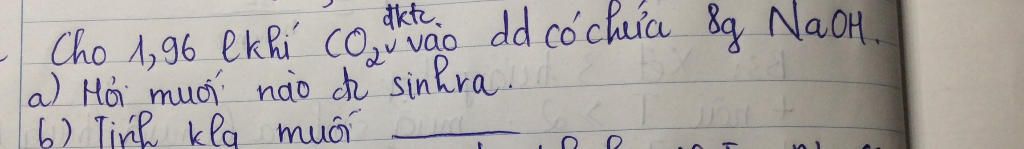 đktc.
Cho 1,96 l khí CO2 vào dd có chứa 8g NaOH.
a) Hỏi muối nào đc sinh ra.
b) Tính klg muối